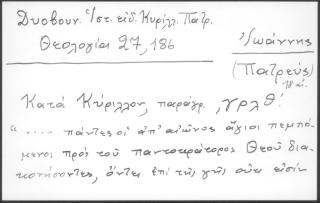 Δυοβουν. Ἱστ. εἰδ. Κυρίλλ. Πατρ.
Θεολογίαι 27, 186
Ἰωάννης
(Πατρεύς)
18 αἰ.
Κατά Κύριλλον, παράγρ. ͵γρλθ΄
".... πάντες οἱ ἀπ' αἰῶνος ἅγιοι πεμπό-
μενοι πρός τοῦ παντοκράτορος Θεοῦ δια-
κονήσοντες, ὄντες ἐπί τῆς γῆς οὐκ εἰσίν